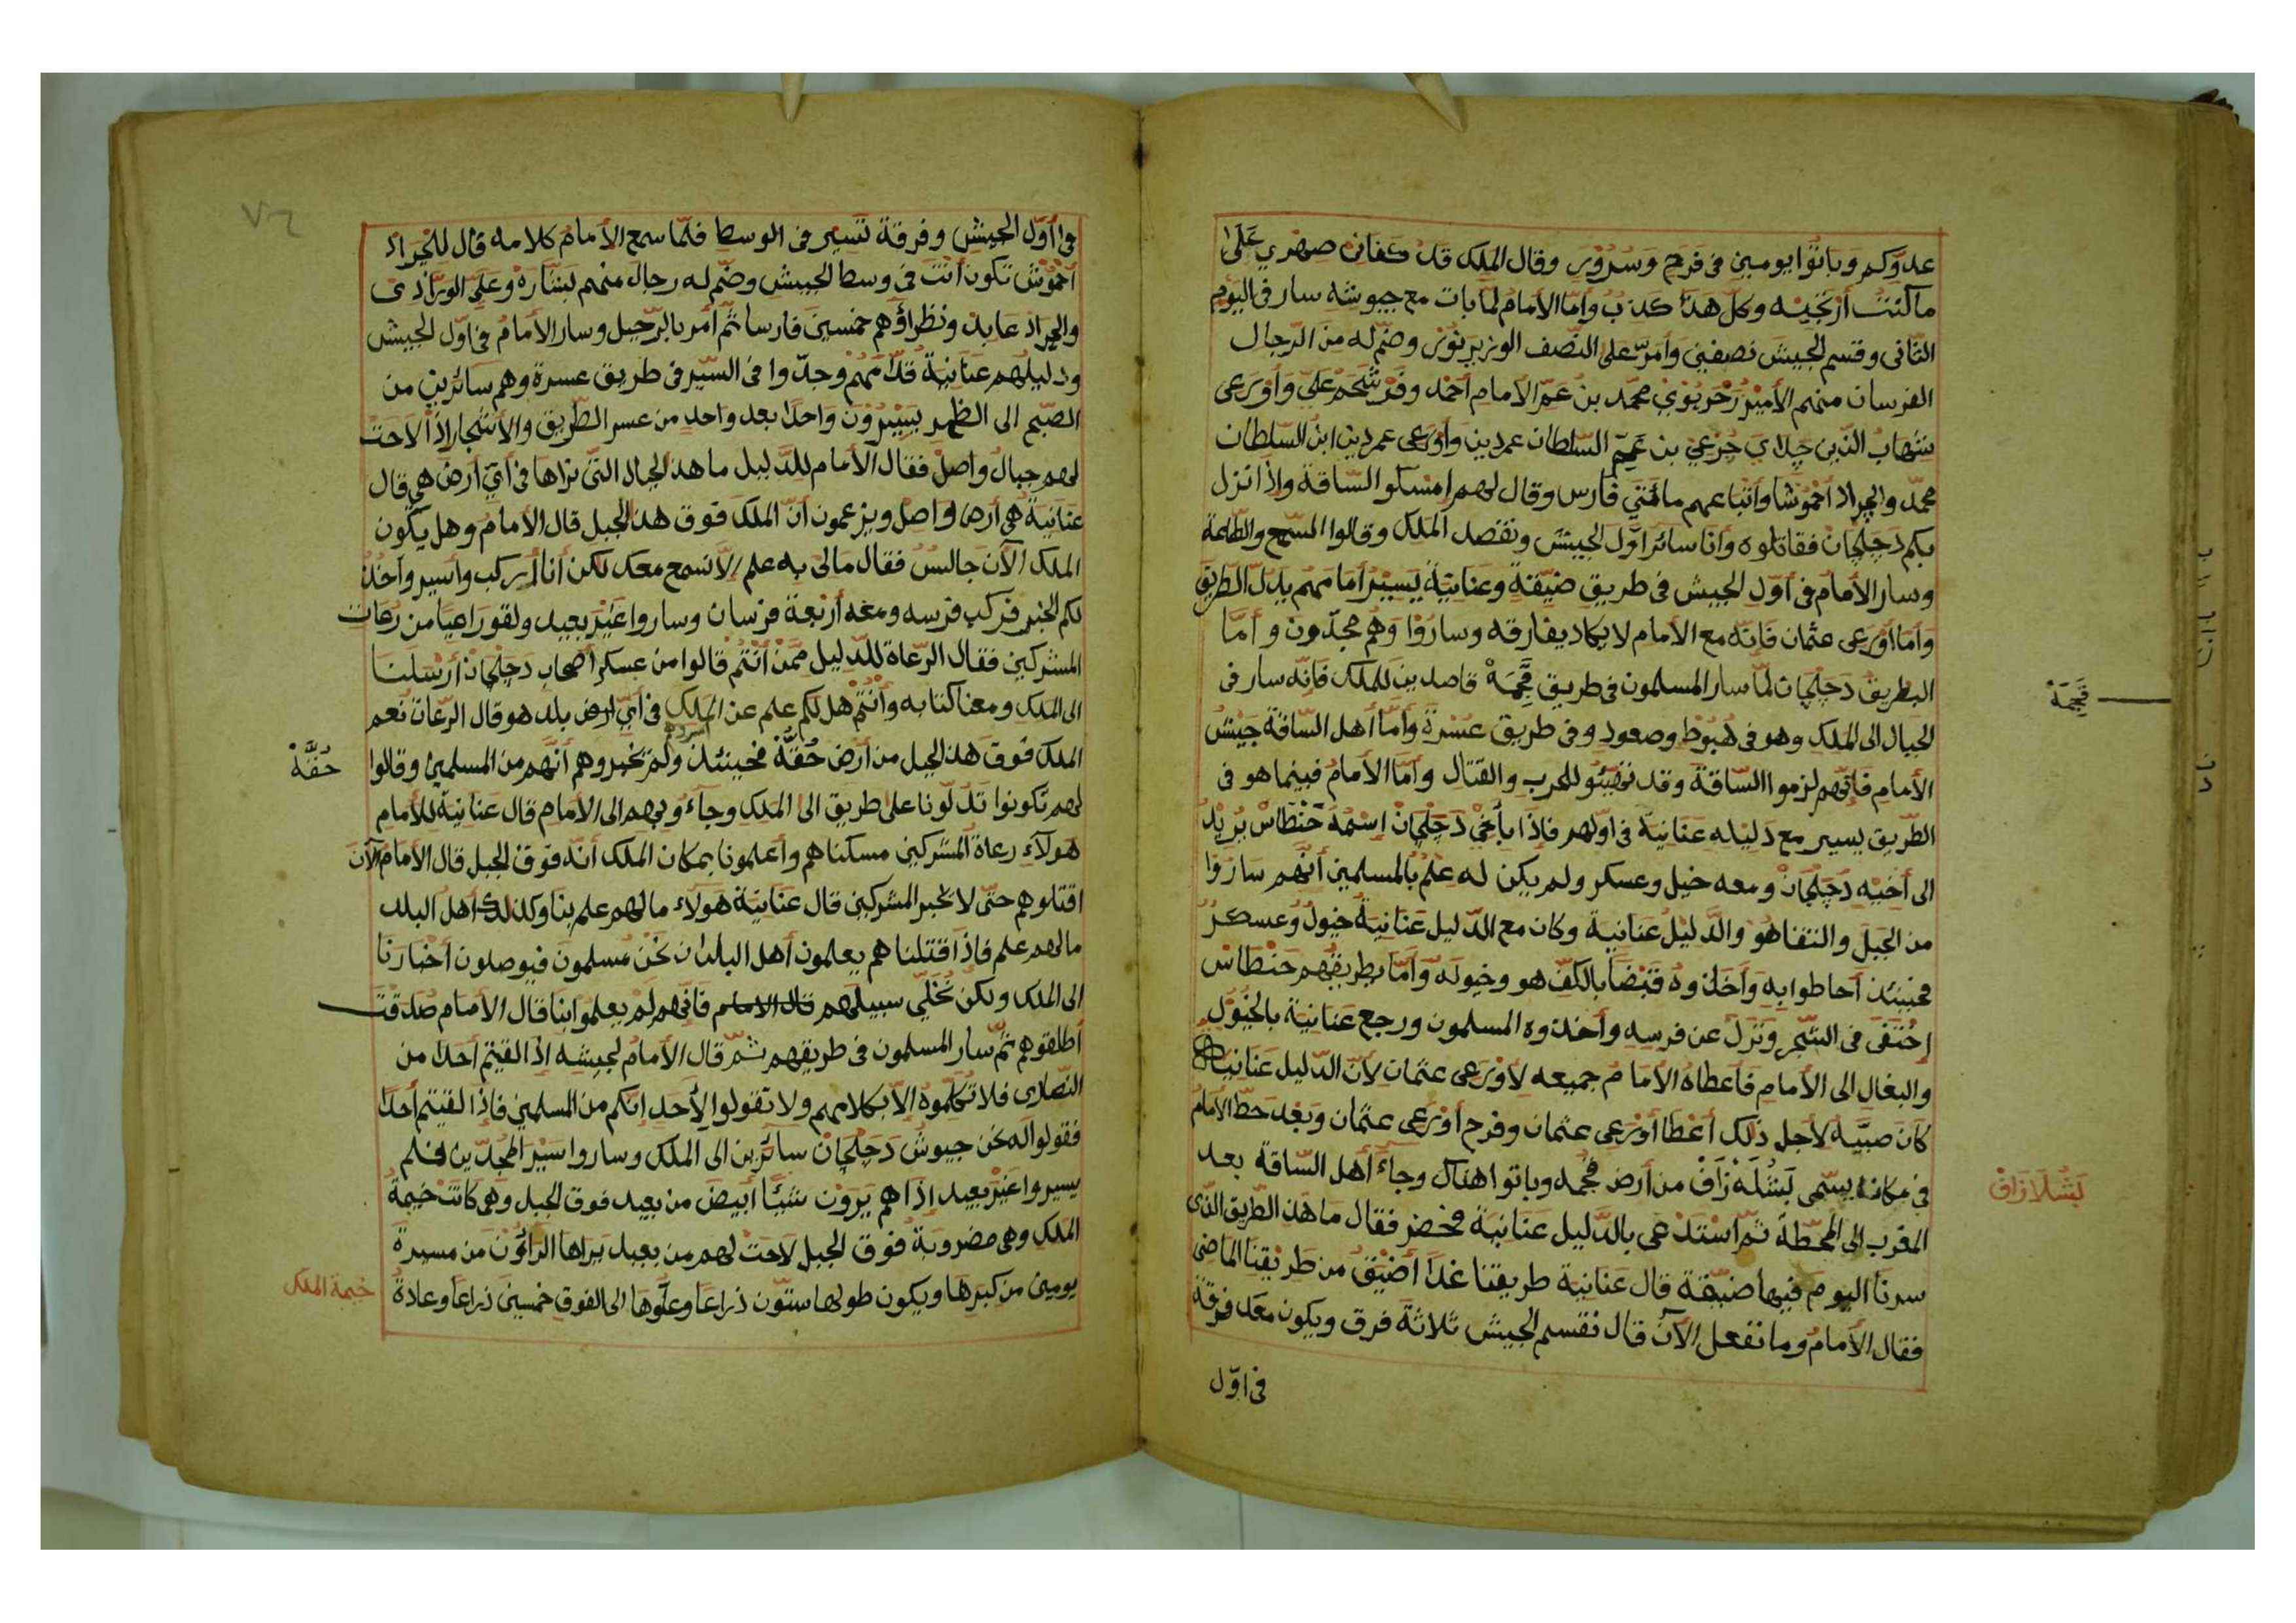 عدوّكم وباتوا يومين في فرح وسرور وقال الملك قد كفاني صهري على
ما كنت أرتجيه وكل هذا كذب وأما الأمام لما بات مع جيوشه سار في اليوم
الثاني وقسم الجيش نصفين وأمر على النصف الوزير نور وضم له من الرجال
الفرسان منهم الأمير زحربوي محمد بن عم الأمام أحمد وفرشحم علي وأورعى
شهاب الدين جلادي جزعي بن عم السلطان عمردين وأورعى عمردين ابن السلطان
محمد والجراد أحموشا وأتباعهم مائتي فارس وقال لهم امسكوا الساقة واذا نزل
بكم دجلجان فقاتلوه وأنا سائر أول الجيش ونقصد الملك وقالوا السمع والطاعة
وسار الأمام في أول الجيش في طريق ضيقة وعنانية يسير أمامهم يدل الطريق
وأما أورعى عثمان فانه مع الامام لا يكاد يفارقه وساروا وهم مجدون وأما
البطريق دجلجان لما سار المسلمون في طريق قجمة قاصدين للملك فانه سار في
الجبال الى الملك وهو في هبوط وصعود وفي طريق عسرة وأما أهل الساقة جيش
الأمام فانهم لزموا الساقة وقد تهيئو للحرب والقتال وأما الأمام فبينما هو في
الطريق يسير مع دليله عنانية في اولهم فاذا بأخي دجلجان اسمه حنطاس يريد
الى أخيه دجلجان ومعه خيل وعسكر ولم يكن له علم بالمسلمين أنهم ساروا
من الجبل والتقا هو والدليل عنانية وكان مع الدليل عنانية خيول وعسكر
فحينئذ أحاطوا به وأخذوه قبضا بالكف هو وخيوله وأما بطريقهم حنطاس
اختفى في الشجر ونزل عن فرسه وأخذوه المسلمون ورجع عنانية بالخيول
والبغال الى الأمام فأعطاه الأمام جميعه لأورعى عثمان لأن الدليل عنانية
كان صبيه لأجل ذلك أعطا أورعى عثمان وفرح أورعى عثمان وبعد حط الأمام
في مكان يسمى بشله زاف من أرض قجمه وباتوا هناك وجاء أهل الساقة بعد
المغرب الى المحطة ثم استدعى بالدليل عنانية فحضر فقال ما هذ الطريق الذي
سرنا اليوم فيها ضيقة قال عنانية طريقنا غدا أضيق من طريقنا الماضي
فقال الأمام وما نفعل الآن قال نقسم الجيش ثلاثة فرق ويكون معك فرقة
في اول
قجمة
بشلازاق
٧٦
في أول الجيش وفرقة تسير في الوسط فلما سمع الأمام كلامه قال للجراد
أحموش تكون أنت في وسط الجيش وضم له رجال منهم بشاره وعلي الورادي
والجراد عابد ونظراؤهم خمسين فارسا ثم أمر بالرحيل وسار الأمام في أول الجيش
ودليلهم عنانية قدامهم وجدوا في السير في طريق عسرة وهم سائرين من
الصبح الى الظهر يسيرون واحدا بعد واحد من عسر الطريق والأشجار اذا لاحت
لهم جبال واصل فقال الأمام للدليل ما هذ الجبال التي نراها في أي أرض هي قال
عنانية هي أرض واصل ويزعمون أن الملك فوق هذ الجبل قال الأمام وهل يكون
الملك الآن جالس فقال مالي به علم الا نسمع معك لكن أنا أركب وأسير وآخذ
لكم الخبر فركب فرسه ومعه أربعة فرسان وساروا غير بعيد ولقو راعيا من رعات
المشركين فقال الرعاة للدليل ممن أنتم قالوا من عسكر أصحاب دجلجان أرسلنا
الى الملك ومعنا كتابه وأنتم هل لكم علم عن الملك في أي ارض بلد هو قال الرعات نعم
الملك فوق هذ الجبل من أرض حقة فحينئذ ولم تخبروهم أنهم من المسلمين وقالوا
لهم تكونوا تدلونا على طريق الى الملك وجاءو بهم الى الأمام قال عنانية للأمام
هولاء رعاة المشركين مسكناهم وأعلمونا بمكان الملك أنه فوق الجبل قال الأمام الآن
اقتلوهم حتى لا تخبر المشركين قال عنانية هولاء ما لهم علم بنا وكذلك أهل البلد
ما لهم علم فاذا قتلناهم يعلمون أهل البلد ان نحن مسلمون فيوصلون أخبارنا
الى الملك ولكن نخلي سبيلهم قال الامام فانهم لم يعلموا بنا قال الأمام صدقت
أطلقوهم ثم سار المسلمون في طريقهم ثم قال الأمام لجيشه اذا لقيتم أحدا من
النصارى فلا تكلموه الا بكلامهم ولا تقولوا لأحد انكم من المسلمين فاذا لقيتم أحدا
فقولوا له نحن جيوش دجلجان سائرين الى الملك وساروا سير المجدين فلم
يسيروا غير بعيد اذا هم يرون شيئا أبيض من بعيد فوق الجبل وهي كانت خيمة
الملك وهي مضروبة فوق الجبل لاحت لهم من بعيد يراها الراؤن من مسيرة
يومين من كبرها ويكون طولها ستون ذراعا وعلوها الى الفوق خمسين ذراعا وعادة
حقة
خيمة الملك